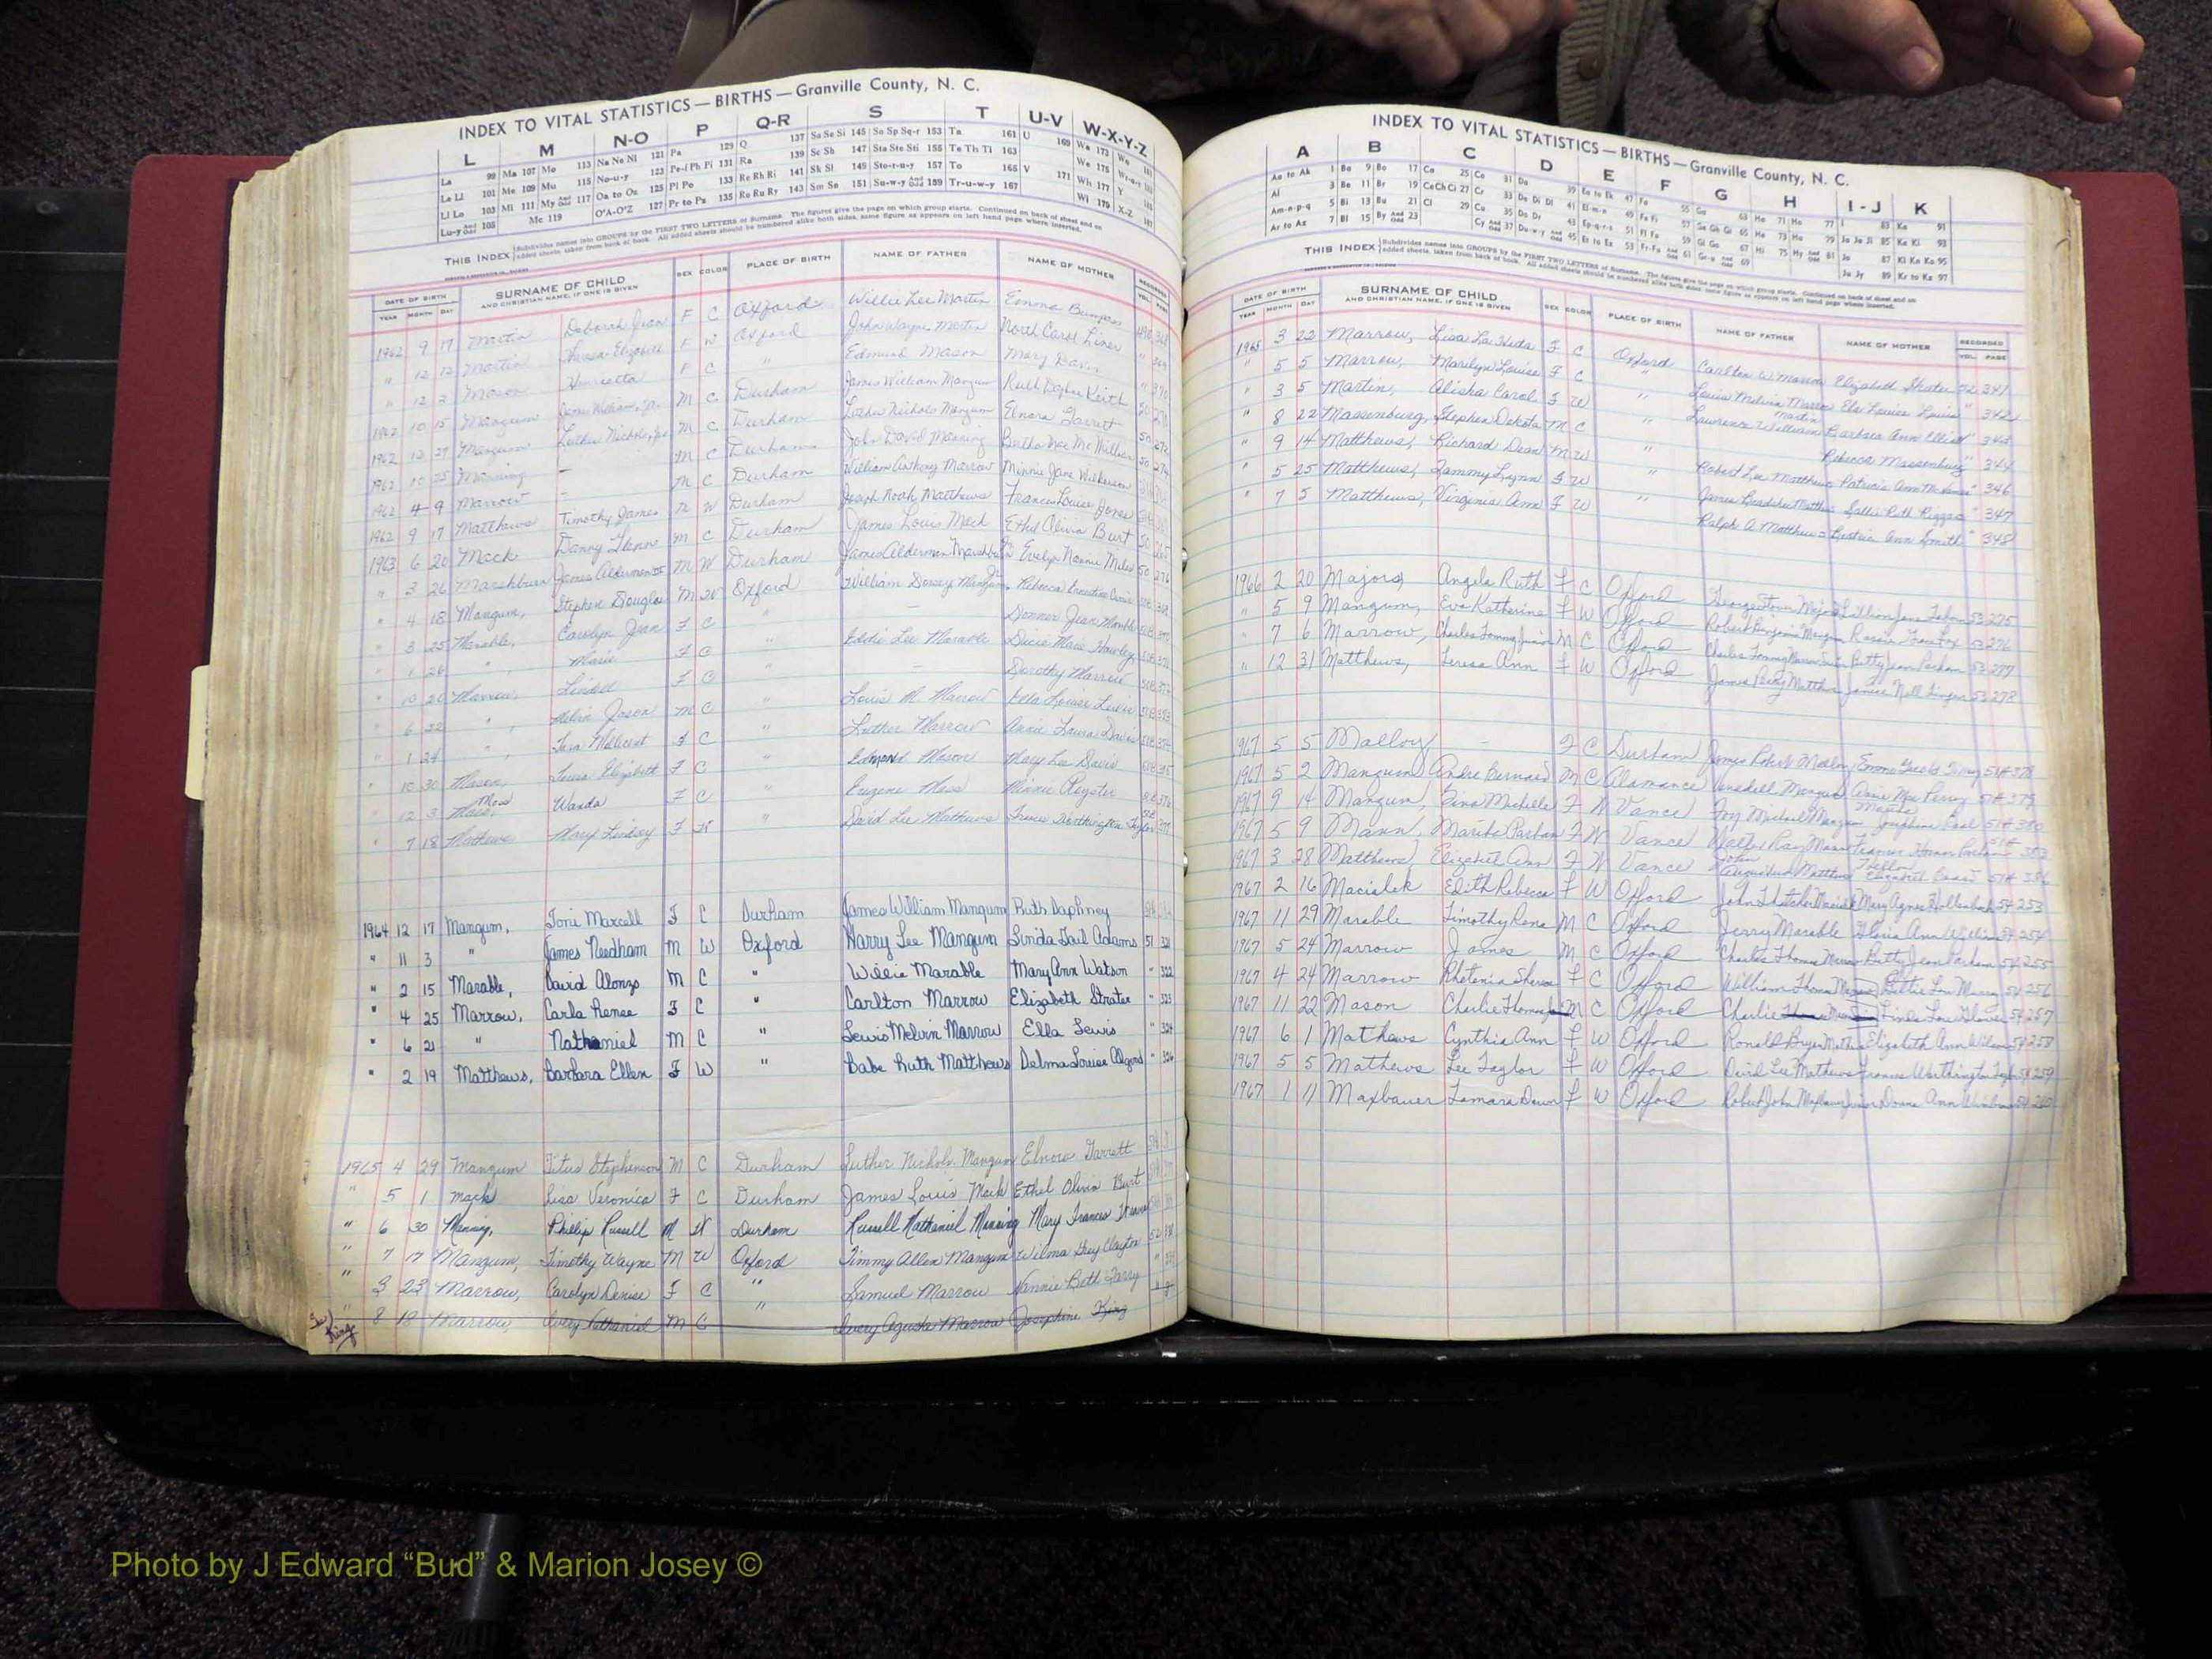 INDEX TO VITAL STATISTICS — BIRTHS — Granville County, N. C.
L M N-O P Q-R S T U-V W-X-Y-Z
La 99 Ma 107 Mo 113 Na Ne Ni 121 Pa 129 Q 137 Sa Se Si 145 So Sp Sq-r 153 Ta 161 U 169 Wa 173 Wo 181
Le Li 101 Me 109 Mu 115 No-u-y 123 Pe-f Ph Pi 131 Ra 139 Sc Sh 147 Sta Ste Sti 155 Te Th Ti 163 We 175
Ll Lo 103 Mi 111 My And Odd 117 Oa to Oz 125 Pl Po 133 Re Rh Ri 141 Sk Sl 149 Sto-r-u-y 157 To 165 V 171 Wh 177 Y
Lu-y And Odd 105 Mc 119 O'A-O'Z 127 Pr to Pz 135 Ro Ru Ry 143 Sm Sn 151 Su-w-y And Odd 159 Tr-u-w-y 167 Wi 179 X-Z 187
THIS INDEX Subdivides names into GROUPS by the FIRST TWO LETTERS of Surname. The figures give the page on which group starts. Continued on back of sheet and on
added sheets, taken from back of book. All added sheets should be numbered alike both sides, same figure as appears on left hand page where inserted.
DATE OF BIRTH SURNAME OF CHILD SEX COLOR PLACE OF BIRTH NAME OF FATHER NAME OF MOTHER RECORDED
YEAR MONTH DAY AND CHRISTIAN NAME, IF ONE IS GIVEN VOL. PAGE
1962 9 17 Martin Deborah Jean F C Oxford Willie Lee Martin Emma
" 12 12 Martin Theresa Elizabeth F W Oxford John Wayne Martin Carol Liner
" 12 3 Mason Henrietta F C " Edmund Mason Mary Davis
1962 10 15 Mangum James William, Jr. M C Durham James William Mangum Ruth Daphne Keith
1962 12 27 Mangum Luther Nichols, Jr. M C Durham Luther Nichols Mangum Elnora Garrett
1962 10 25 Manning – M C Durham John David Manning
1962 4 9 Marrow – M C Durham William Anthony Marrow Minnie Jane Wilkerson
1962 9 17 Matthews Timothy James M W Durham Joseph Noah Matthews Frances Louise Jones
1963 6 20 Mack Danny Glenn M C Durham James Louis Mack Ethel Olivia Burt
" 3 26 Marshburn James Alderman III M W Durham James Alderman Marshburn Jr. Evelyn Nannie Miles
" 4 18 Mangum, Stephen Douglas M W Oxford William Dorsey Mangum, Jr. Rebecca
" 3 25 Marable, Carolyn Jean F C " –
" 1 26 " Marie F C " Eddie Lee Marable Marie
" 10 20 Marrow, F C " – Dorothy Marrow
" 6 22 " , Melvin Jason M C " Louis M. Marrow Ella Louise Lewis
" 1 24 " , Tara Millicent F C " Luther Marrow Annie Laura Davis
" 10 30 Mason, Teresa Elizabeth F C " Edmond Mason Mary Lee Davis
" 12 3 Moss Wanda F C " Eugene Moss Minnie Royster
" 7 18 Mathews Mary Lindsey F W " David Lee Mathews Frances Worthington Taylor
1964 12 17 Mangum, Toni Marcell F C Durham James William Mangum Ruth Daphney
" 11 3 " James Needham M W Oxford Harry Lee Mangum Linda Gail Adams 51 321
" 2 15 Marable, David Alonzo M C " Willie Marable Mary Ann Watson " 322
" 4 25 Marrow, Carla Renee F C " Carlton Marrow Elizabeth Strater " 323
" 6 21 " Nathaniel M C " Lewis Melvin Marrow Ella Lewis " 324
" 2 19 Matthews, Barbara Ellen F W " Babe Ruth Matthews Delma Louise " 326
1965 4 29 Mangum Titus Stephenson M C Durham Luther Nichols Mangum Elnora Garrett
" 5 1 Mack Lisa Veronica F C Durham James Louis Mack Ethel Olivia Burt
" 6 30 Manning, Phillip Russell M W Durham Russell Nathaniel Manning Mary Frances
" 7 17 Mangum, Timothy Wayne M W Oxford Jimmy Allen Mangum Wilma Gray Clayton
" 3 23 Marrow, Carolyn Denise F C " Samuel Marrow Nannie Beth Farry
See King " 8 18 Marrow, Ivery Nathaniel M C " Ivery Agusta Marrow Josephine King
INDEX TO VITAL STATISTICS — BIRTHS — Granville County, N. C.
A B C D E F G H I-J K
Aa to Ak 1 Ba 9 Bo 17 Ca 25 Co 31 Da 39 Ea to Ek 47 Fa 55 Ga 63 Ha 71 Ho 77 I 83 Ka 91
Al 3 Be 11 Br 19 Ce Ch Ci 27 Cr 33 De Di Dl 41 El-m-n 49 Fe Fi 57 Ge Gh Gi 65 He 73 Hu 79 Ja Je Ji 85 Ke Ki 93
Am-n-p-q 5 Bi 13 Bu 21 Cl 29 Cu 35 Do Dr 43 Ep-q-r-s 51 Fl Fo 59 Gl Go 67 Hi 75 Hy And Odd 81 Jo 87 Kl Kn Ko 95
Ar to Az 7 Bl 15 By And Odd 23 Cy And Odd 37 Du-w-y And Odd 45 Et to Ez 53 Fr-Fu And Odd 61 Gr-u And Odd 69 Ju Jy 89 Kr to Kz 97
THIS INDEX Subdivides names into GROUPS by the FIRST TWO LETTERS of Surname. The figures give the page on which group starts. Continued on back of sheet and on
added sheets, taken from back of book. All added sheets should be numbered alike both sides, same figure as appears on left hand page where inserted.
DATE OF BIRTH SURNAME OF CHILD SEX COLOR PLACE OF BIRTH NAME OF FATHER NAME OF MOTHER RECORDED
YEAR MONTH DAY AND CHRISTIAN NAME, IF ONE IS GIVEN VOL. PAGE
1965 3 22 Marrow, Lisa La Heda F C Oxford Carlton W. Marrow Elizabeth Strater 52 341
" 5 5 Marrow, Marilyn Louise F C " Louis Melvin Marrow Ela Louise Lewis " 342
" 3 5 Martin, Alisha Carol F W " Lawrence William Martin Barbara Ann Elliott " 343
" 8 22 Massenburg, Stephen Dakota M C " Rebecca Massenburg " 344
" 9 14 Matthews, Richard Dean M W " Robert Lee Matthews Patricia Ann " 346
" 5 25 Matthews, Tammy Lynn F W " James Matthews Sallie Ruth Riggan " 347
" 7 5 Matthews, Virginia Ann F W " Ralph A. Matthews Bertie Ann Smith " 348
1966 2 20 Majors, Angela Ruth F C Oxford Georgetown Majors Lillian Jane 53 275
" 5 9 Mangum, Eva Katherine F W Oxford Robert Benjamin Mangum 53 276
" 7 6 Marrow, Charles Tommy Junior M C Oxford Charles Tommy Marrow Betty Jean Parham 53 277
" 12 31 Matthews, Teresa Ann F W Oxford James Percy Matthews Janice Nell 53 278
1967 5 5 Malloy – F C Durham James Robert Malloy Emma 51A 378
1967 5 2 Mangum Andre Bernard M C Alamance Wendell Mangum Annie Mae Perry 51A 379
1967 9 14 Mangum, Gina Michelle F W Vance Roy Michael Mangum Josephine 51A 380
1967 5 9 Mann, Marika Parham F W Vance Walter Ray Mann Frances 51A 383
1967 3 28 Matthews, Elizabeth Ann F W Vance John Augustus Matthews Elizabeth 51A 386
1967 2 16 Macialek Edith Rebecca F W Oxford John Macialek Mary Agnes 54 253
1967 11 29 Marable Timothy Rena M C Oxford Jerry Marable Gloria Ann 54 254
1967 5 24 Marrow James M C Oxford Charles Thomas Marrow Betty Jean Parham 54 255
1967 4 24 Marrow Rhetenia F C Oxford William Thomas Marrow 54 256
1967 11 22 Mason Charlie Thomas Jr M C Oxford Charlie Linda Lou Glover 54 257
1967 6 1 Mathews Cynthia Ann F W Oxford Ronald Bryan Mathews Elizabeth Ann Wilson 54 258
1967 5 5 Mathews Lee Taylor F W Oxford David Lee Mathews Frances Worthington Taylor 54 259
1967 1 11 Maxbauer Tamara Dawn F W Oxford Robert John Maxbauer Junior Donna Ann 54 260
Photo by J Edward “Bud” & Marion Josey ©